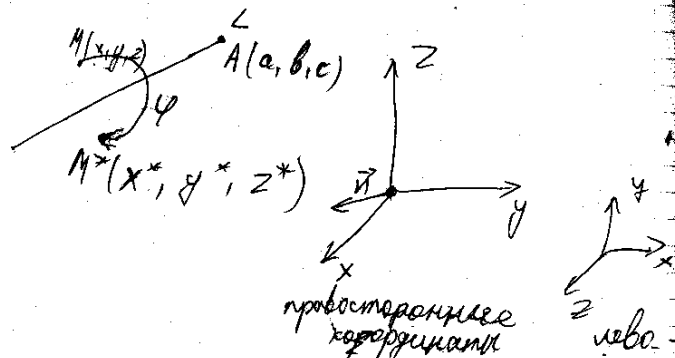 L
M(x,y,z)
A(a,b,c)
φ
M*(x*, y*, z*)
Z
n
y
x
правосторонние
координаты
y
x
z
лево-